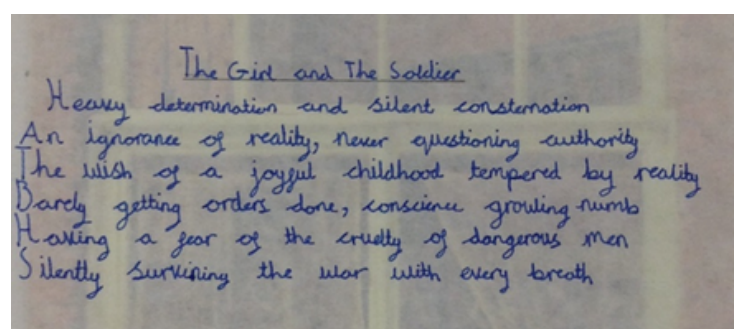 The Girl and The Soldier
Heavy determination and silent consternation
An ignorance of reality, never questioning authority
The wish of a joyful childhood tempered by reality
Barely getting orders done, conscience growing numb
Having a fear of the cruelty of dangerous men
Silently surviving the war with every breath